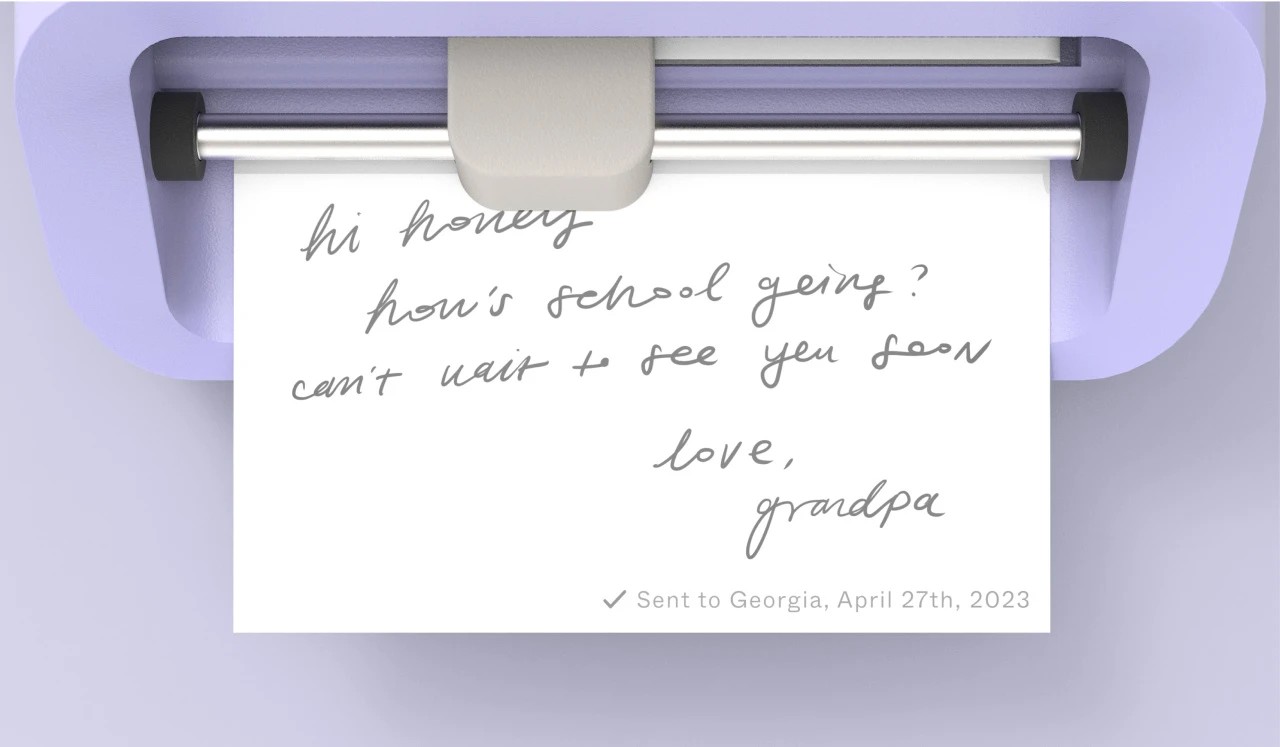 hi honey
how's school going?
can't wait to see you soon
love,
grandpa
✓ Sent to Georgia, April 27th, 2023